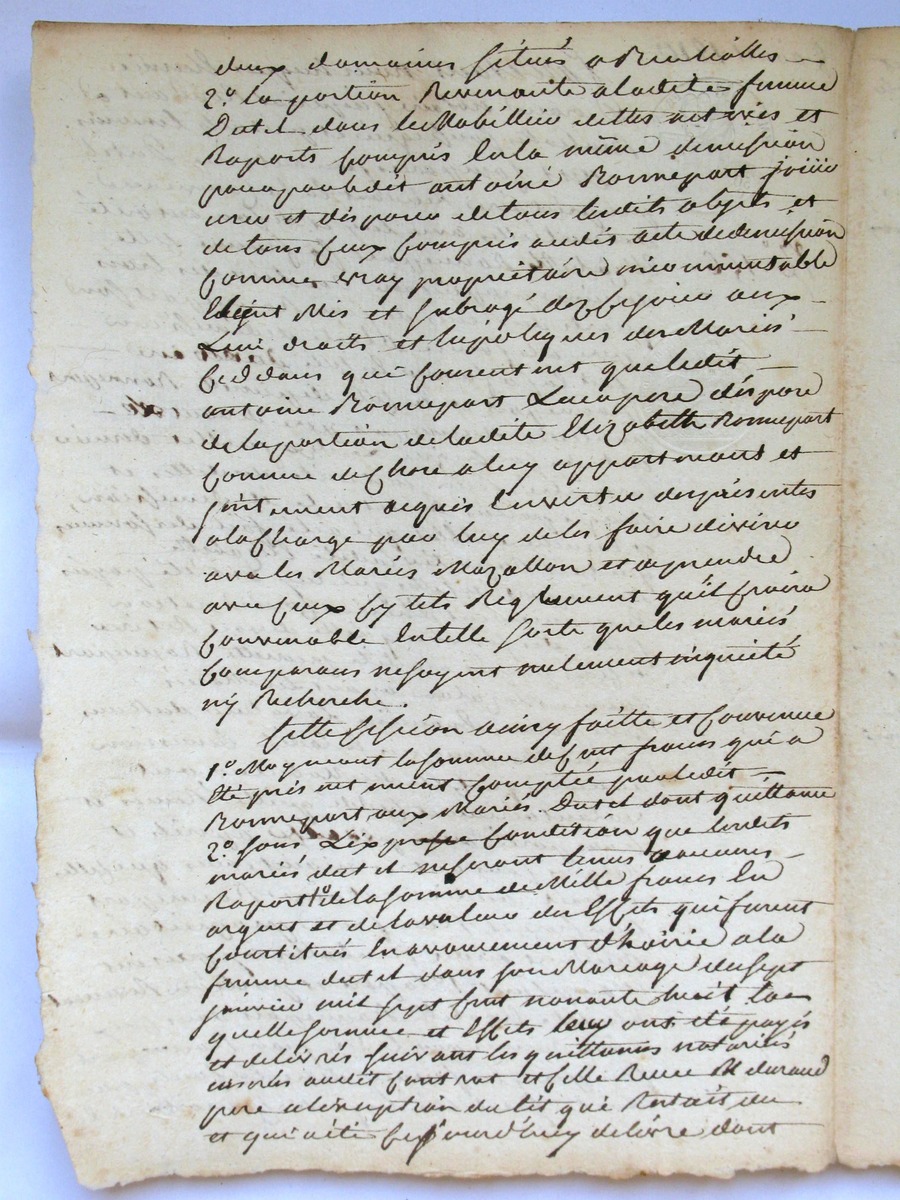 deux domaines situés a
2.o la portion Revenante a ladite femme
Dutel dans le Mobillier dettes actives et
Raports compris En la même demission
pour par ledit antoine Bonnepart jouir
user et disposer de tous lesdits objets et
de tous Ceux Compris audit acte de demission
Comme vray proprietaire incommutable
Etant Mis et subrogé dez Ce jour aux
droits et hipoteques des Mariés
Ceddans qui Consentent que ledit
antoine Bonnepart dispose
de la portion de ladite Elizabeth Bonnepart
Comme de Chose a luy appartenant et
acquis En vertu des présentes
a la Charge par luy de les faire
avec les Mariés Mazallon et a prendre
avec Ceux cy tels Reglement qu'il Croira
Convenable En telle sorte que les mariés
Comparans ne soyent nulement inquieté
ny Recherche.
Cette Session ainsy faitte et Convenue
1.o Moyenant la somme de Cent francs qui a
Eté présentement Comptée par ledit
Bonnepart aux Mariés Dutel dont quittance
2.o sous Lexpresse Condition que lesdits
mariés dutel ne seront tenus d'aucuns
Raport 1.o de la somme de Mille francs En
argent et de la valeur des Effets qui furent
Constitués En avancement d'hoirie a la
femme dutel dans son Mariage du sept
janvier mil sept Cent nonante huit la
quelle somme et Effets leur ont été payés
et delivrés suivant les quittances notariés
audit Contrat et Celle Reçue Me durand
pere a l'exception du lit qui Restait du
et qui a été Cejourd'huy delivré dont